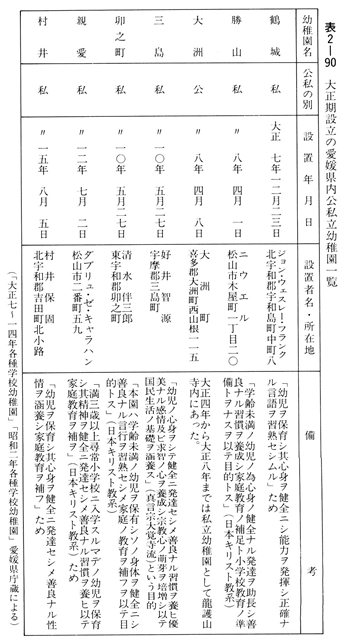 表2―90　大正期設立の愛媛県内公私立幼稚園一覧
幼稚園名
公私の別
設置年月日
設置者名・所在地
備考
鶴城
私
大正　七年一二月二三日
ジョン・ウェスレー・フランク
北宇和郡宇和島町中町八
「幼児ノ保育シ其心身ヲ健全ニシ能力ヲ発揮シ正確ナ
ル言語ヲ習熟セシムル」ため
勝山
私
〃　八年　四月　一日
ニウエル
松山市木屋町一丁目二〇
「学齢未満ノ幼児ノ為心身ノ健全ナル発達ヲ助長シ善
良ナル習慣ヲ養成シ家庭教育ノ補足ト小学校教育ノ準
備トヲナスヲ以テ目的トス」（日本キリスト教系）
大洲
公
〃　八年　四月　八日
大洲町
喜多郡大洲町西山根一一五
大正四年から大正八年までは私立幼稚園として龍護山
寺内にあった。
三島
私
〃　一〇年　五月二七日
好井智源
宇摩郡三島町
「幼児ノ心身ヲシテ健全ニ発達セシメ善良ナル習慣ヲ養ヒ優
美ナル感情及ビ求智ノ心ヲ養成シ宗教心ノ萌芽ヲ培増シ以テ
国民生活ノ基礎ヲ涵養ス」（真言宗大覚寺流）という目的
卯之町
私
〃　一〇年　五月二七日
清水伴三郎
東宇和郡卯之町
「本園ハ学齢未満ノ幼児ヲ保育シソノ身体ヲ健全ニシ
善良ナル言行ヲ習熟セシメ家庭ノ教育ヲ補フヲ以テ目
的トス」（日本キリスト教系）
親愛
私
〃　一二年　七月　二日
ダブリュ・ゼ・キャラハン
松山市二番町五九
「満三歳以上尋常小学校へ入学スルマテノ幼児ヲ保育
シ其精神ヲ健全ニ発達セシメ善良ナル習慣ヲ養ヒ以テ
家庭教育ヲ補フ」（日本キリスト教系）ため
村井
私
〃　一五年　八月　五日
村井保固
北宇和郡吉田町北小路
「幼児ヲ保育シ其心身ヲ健全ニ発達セシメ善良ナル性
情ヲ涵養シ家庭教育ヲ補フ」ため
（「大正七～一四年各種学校幼稚園」「昭和二年各種学校幼稚園」愛媛県庁蔵による）